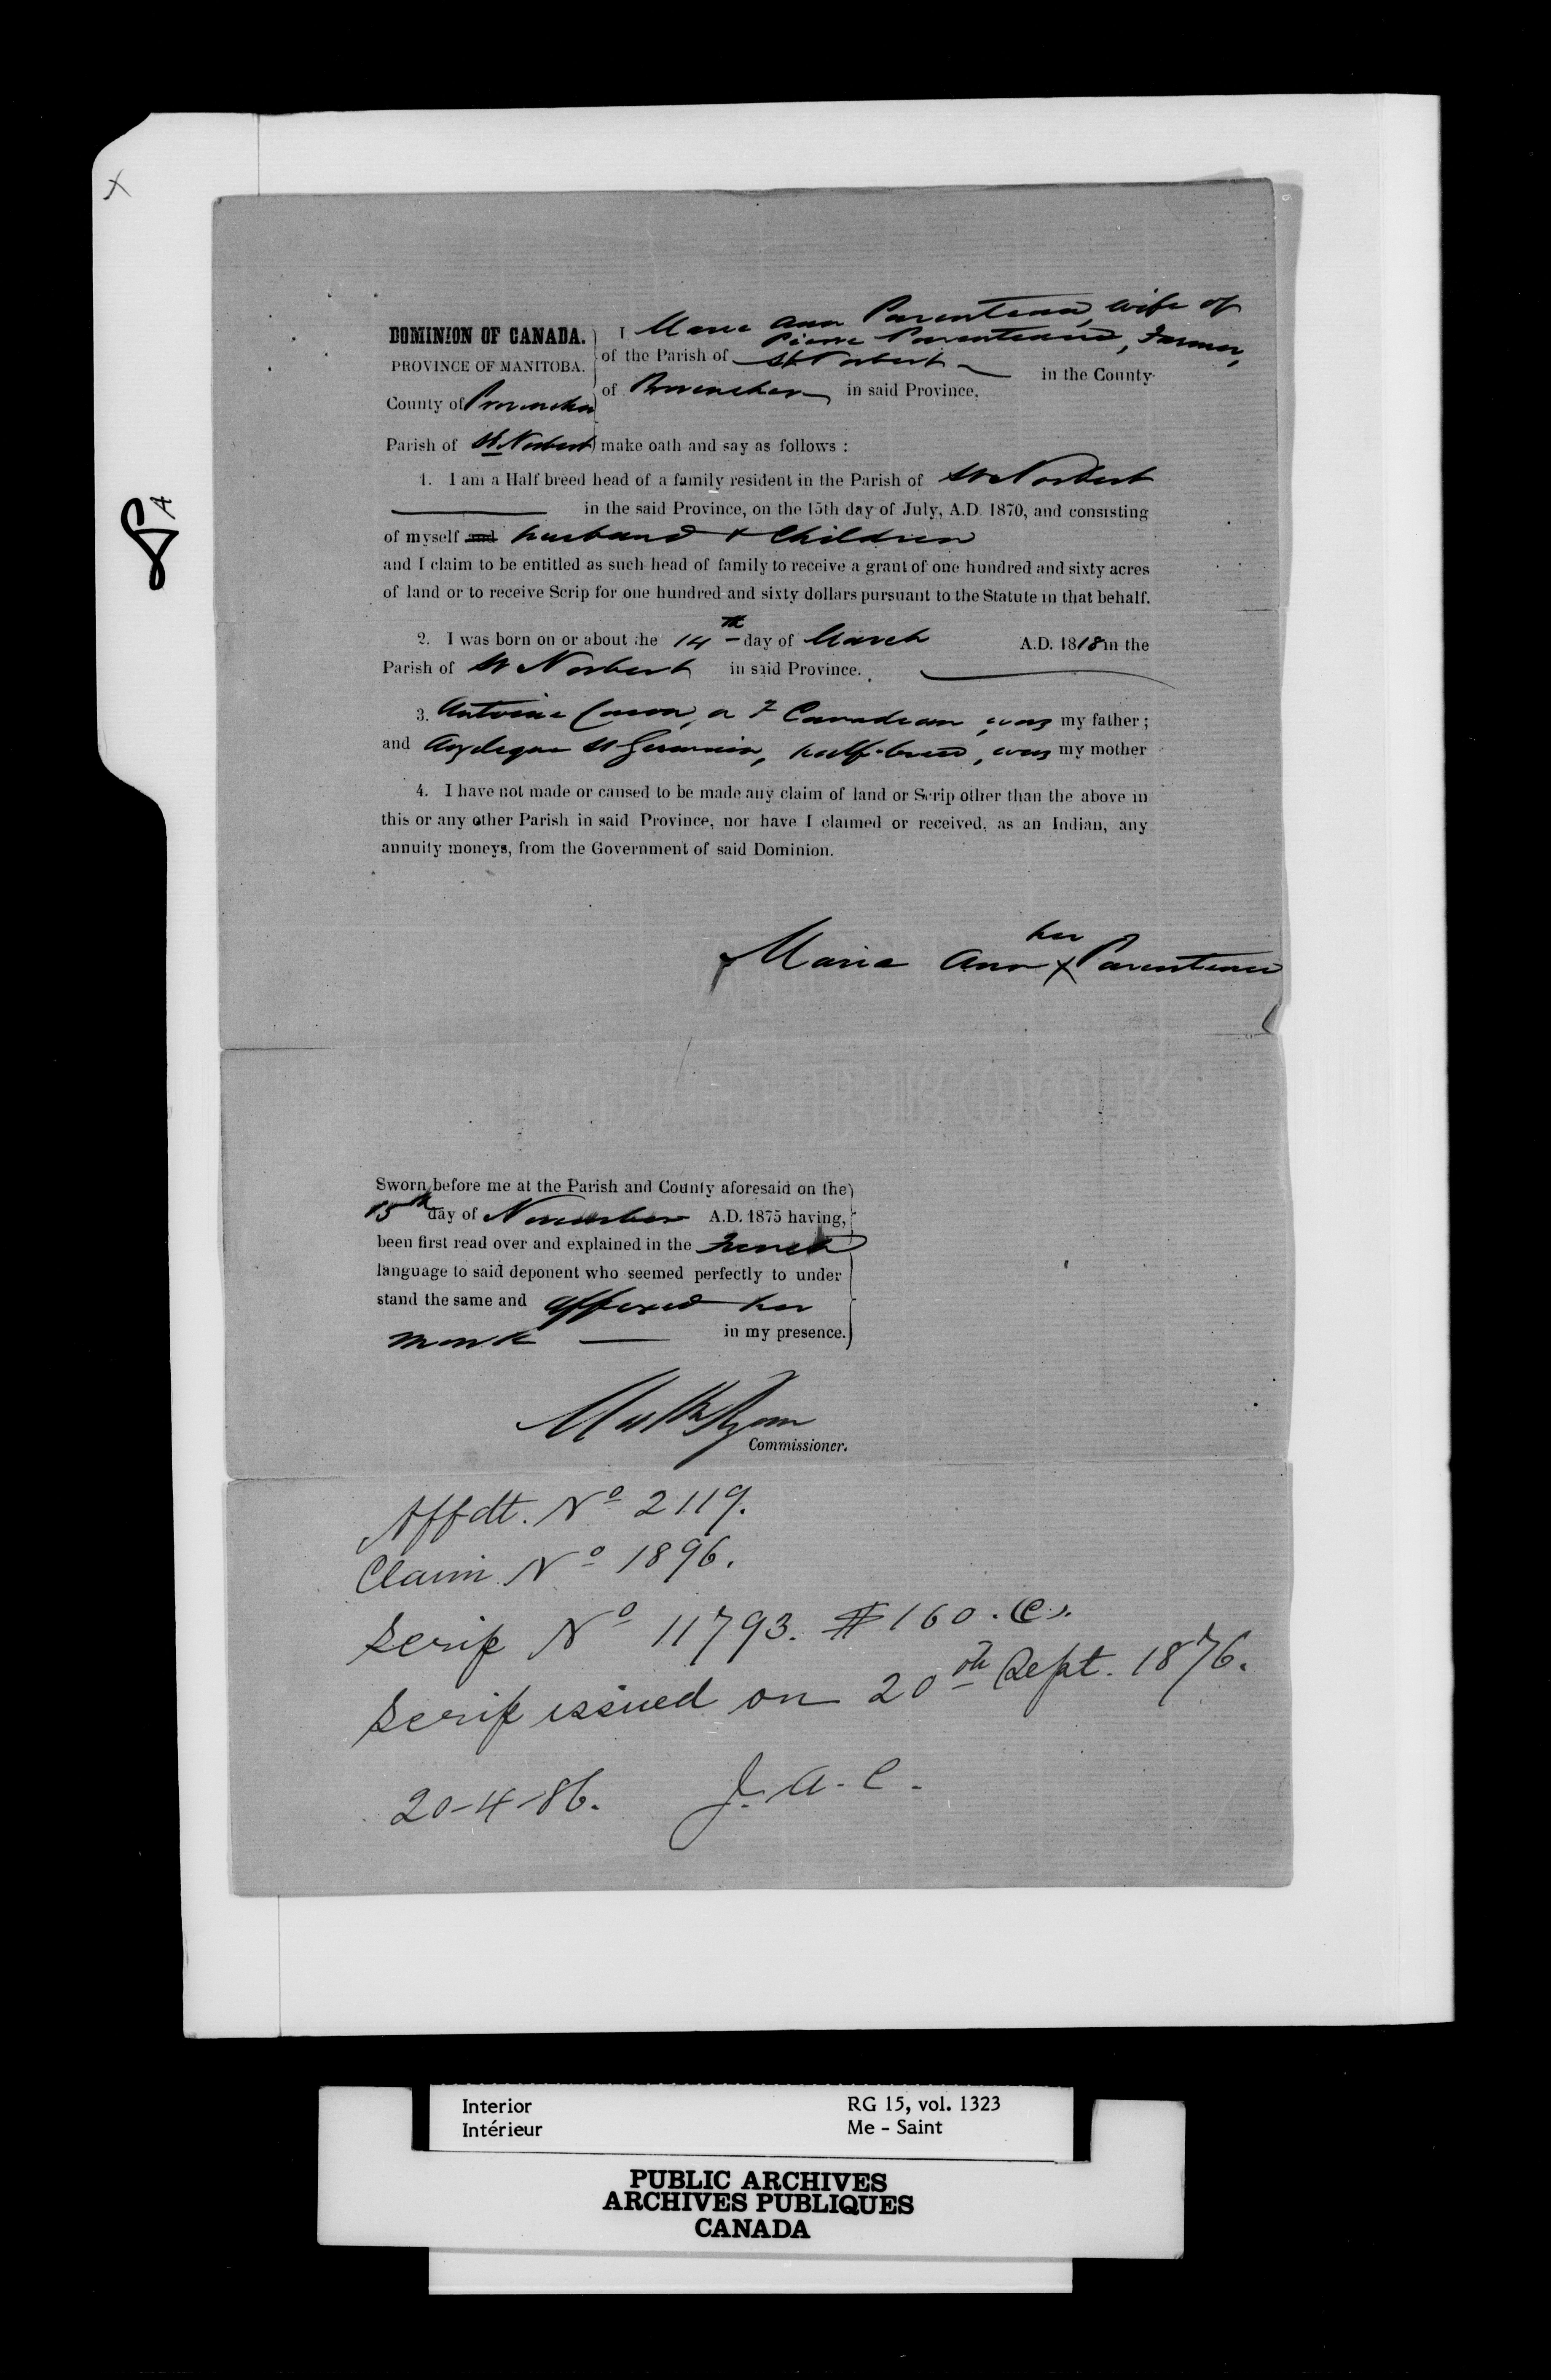 DOMINION OF CANADA.
PROVINCE OF MANITOBA.
County of Provencher
Parish of St. Norbert
I Marie Ann Parenteau, wife of
Pierre Parenteau, Farmer,
of the Parish of St Norbert in the County
of Provencher in said Province,
make oath and say as follows :
1. I am a Half-breed head of a family resident in the Parish of St Norbert
in the said Province, on the 15th day of July, A.D. 1870, and consisting
of myself and husband & Children
and I claim to be entitled as such head of family to receive a grant of one hundred and sixty acres
of land or to receive Scrip for one hundred and sixty dollars pursuant to the Statute in that behalf.
2. I was born on or about the 14th day of March A.D. 1818 in the
Parish of St Norbert in said Province.
3. Antoine a F Canadian, was my father ;
and St Germain, half-breed, was my mother
4. I have not made or caused to be made any claim of land or Scrip other than the above in
this or any other Parish in said Province, nor have I claimed or received, as an Indian, any
annuity moneys, from the Government of said Dominion.
her
Marie Ann x Parenteau
Sworn before me at the Parish and County aforesaid on the
15th day of November A.D. 1875 having,
been first read over and explained in the French
language to said deponent who seemed perfectly to under
stand the same and affixed her
mark in my presence.
Matt Ryan
Commissioner.
Affdt. No 2119.
Claim No 1896.
Scrip No 11793. $160.
Scrip issued on 20th Sept. 1876.
20-4-86. J. A. C.
Interior RG 15, vol. 1323
Intérieur Me - Saint
PUBLIC ARCHIVES
ARCHIVES PUBLIQUES
CANADA